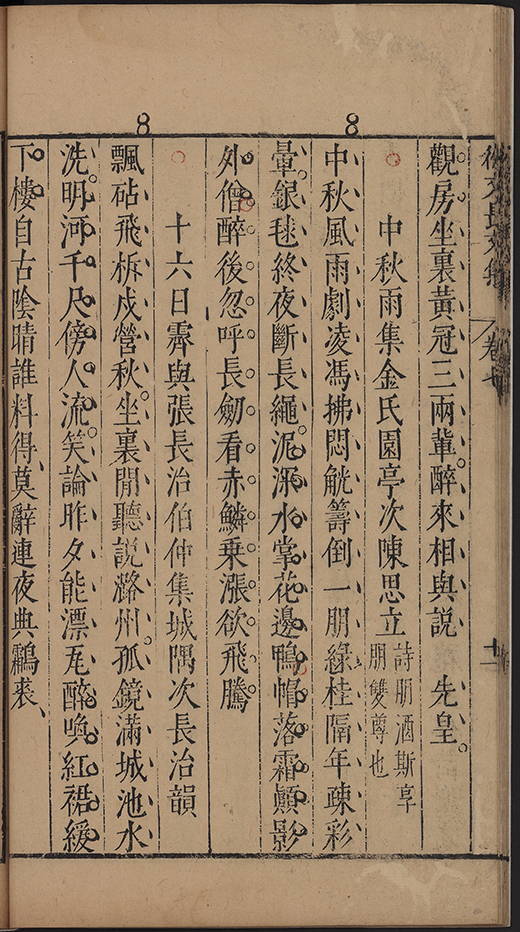 徐文長文集 卷七 十一
觀房坐裏黃冠三兩輩醉來相與說 先皇
中秋雨集金氏園亭次陳思立 詩朋酒斯享朋雙尊也
中秋風雨劇凌馮拂悶觥籌倒一朋綠桂隔年疎彩
暈銀毬終夜斷長繩泥深水掌花邊鴨帽落霜顛影
外僧醉後忽呼長劒看赤鱗乗漲欲飛騰
十六日霽與張長治伯仲集城隅次長治韻
飄砧飛柝戍營秋坐裏閒聽說潞州孤鏡滿城池水
洗明河千尺傍人流笑論昨夕能漂瓦醉喚紅裙緩
下樓自古陰晴誰料得莫辭連夜典鷫裘